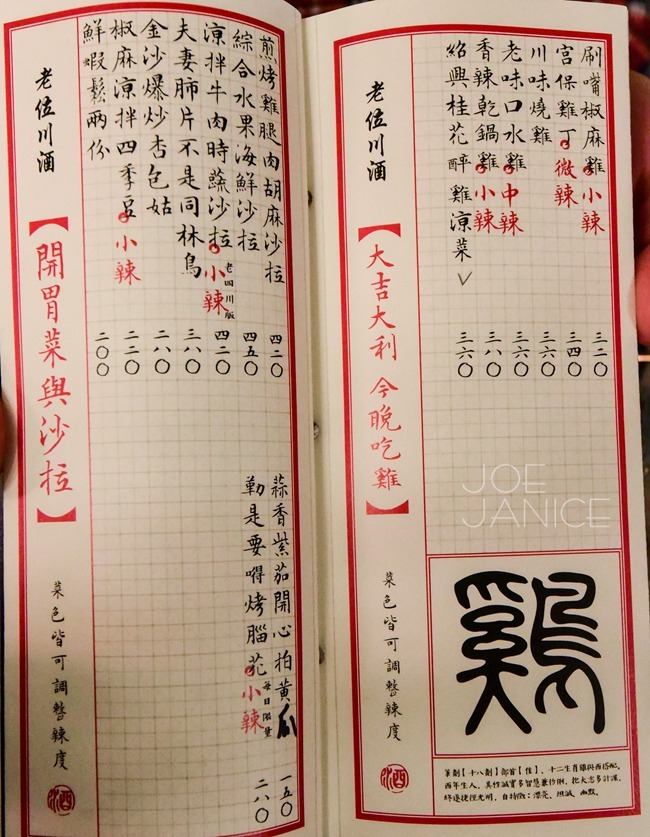 刷嘴椒麻雞 小辣 三二〇
宮保雞丁 微辣 三四〇
川味燒雞 三六〇
老味口水雞 中辣 三六〇
香辣乾鍋雞 小辣 三八〇
紹興桂花醉雞涼菜 ✓ 三六〇
老位川酒
【大吉大利 今晚吃雞】
菜色皆可調整辣度
酒
雞
筆劃【十八劃】部首【隹】、十二生肖雞與酉搭配。
酉年生人、真性誠實多智慧兼伶俐、把大志多計謀、
終遂捷徑光明、自特徵：漂亮、坦誠、幽默。
煎烤雞腿肉胡麻沙拉 四二〇
綜合水果海鮮沙拉 四五〇
涼拌牛肉時蔬沙拉 小辣 老四川版 四二〇
夫妻肺片不是同林鳥 三八〇
金沙爆炒杏包菇 二八〇
椒麻涼拌四季豆 小辣 二二〇
鮮蝦鬆兩份 二〇〇
蒜香紫茄開心拍黃瓜 一五〇
勒是要嘚烤腦花 小辣 每日限量 二八〇
老位川酒
【開胃菜與沙拉】
菜色皆可調整辣度
酒
JOE
JANICE